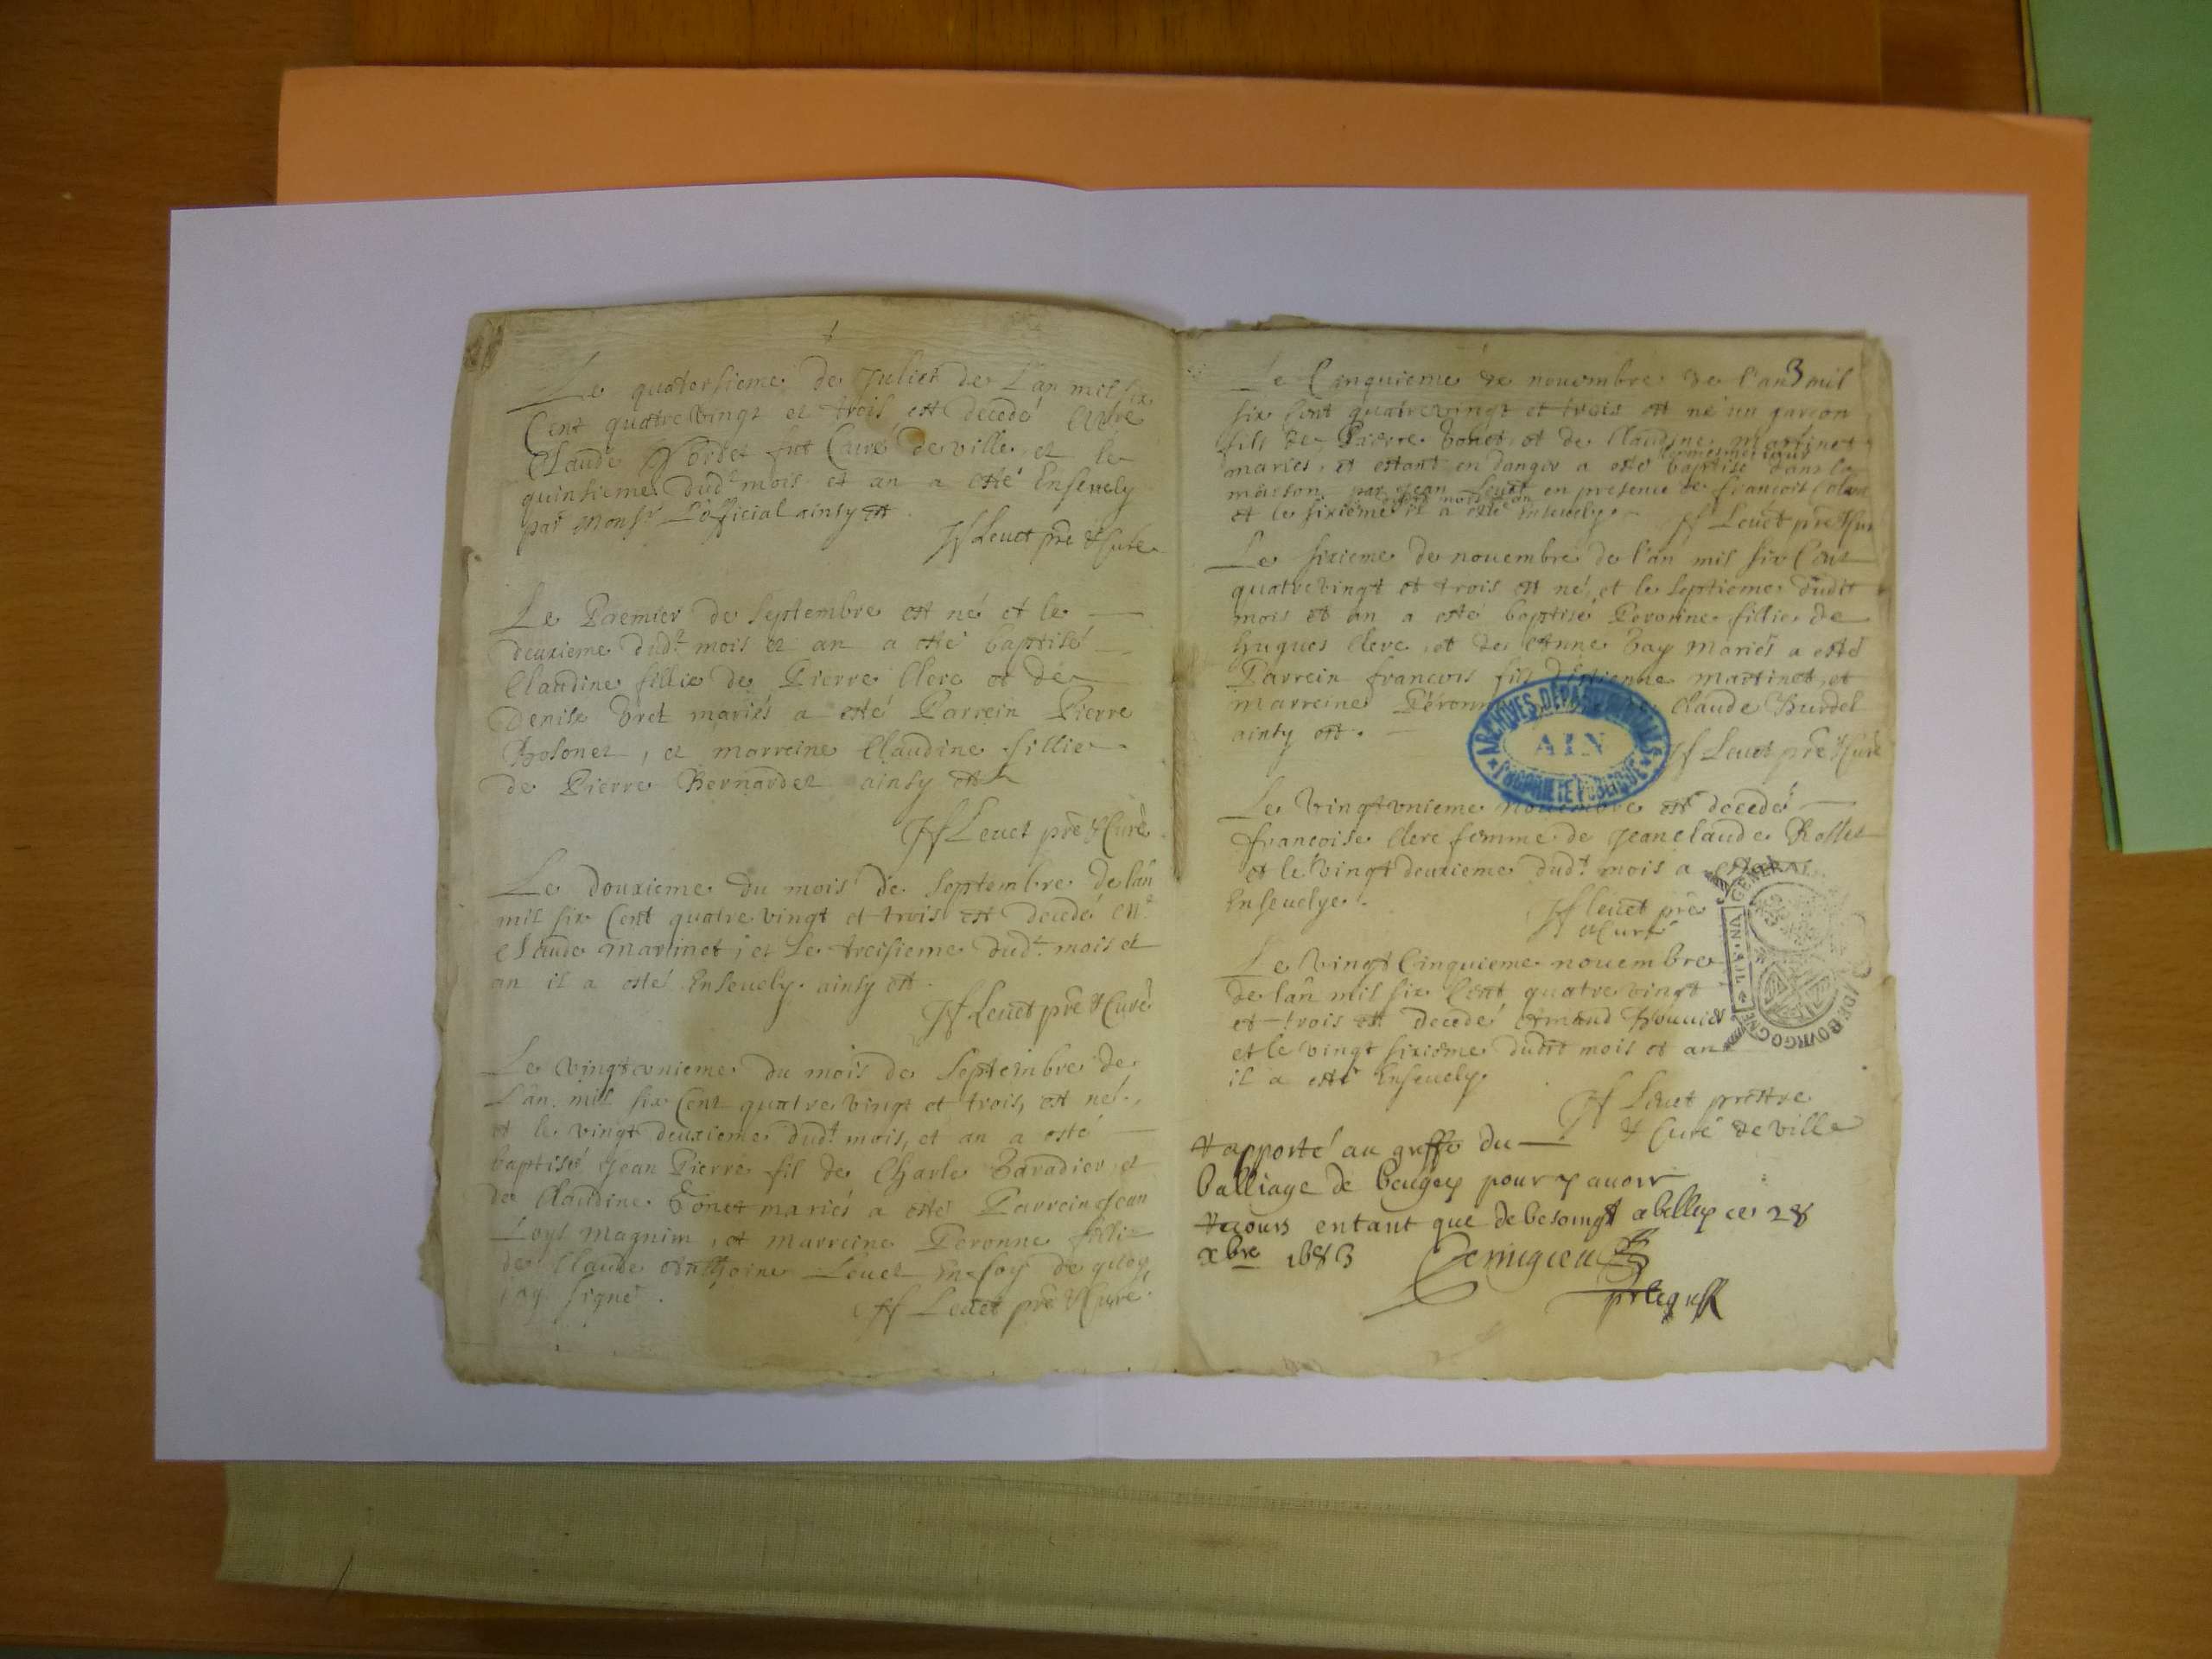 Le quatorsieme de Juliet de L'an mil six
Cent quatre vingt et trois est decedé
Claude fut Curé de ville, et le
quinsieme dudt mois et an a esté Ensevely
par Monsr L'official ainsy est
Leuet pre & Curé
Le Premier de Septembre est né et le
deuxieme dudt mois et an a esté baptisé
Claudine fillie de Pierre Clerc et de
Denise mariés a esté Parrein Pierre
et marreine Claudine fillie
de Pierre Bernardet ainsy est
Leuet pre & Curé
Le douxieme du mois de Septembre de lan
mil six Cent quatre vingt et trois est decedé
Claude Martinet, et Le treisieme dudt mois et
an il a esté Ensevely ainsy est
Leuet pre & Curé
Le vingtunieme du mois de Septembre de
L'an mil six Cent quatre vingt et trois, est né
et le vingt deuxieme dudt mois, et an a esté
baptisé Jean Pierre fil de Charle et
de Claudine mariés a esté Parrein Jean
Loys Magnin, et marreine Peronne fillie
de Claude Anthoine Leuet en foy de quoy
j'ay signé.
Leuet pre & Curé
3
Le Cinquieme de nouembre de l'an mil
six Cent quatrevingt et trois est né un garcon
fils de Pierre et de Claudine Martinet
mariés, et estant en danger a esté baptisé dans la
maison par Jean Leuet en presence de francois
et le sixieme il a esté Enseuely.
Leuet pre & Curé
Le sixieme de nouembre de l'an mil six Cent
quatrevingt et trois est né, et le septieme dudit
mois et an a esté baptisé Peronne fillie de
Hugues Clerc, et de Anne mariés a esté
Parrein francois fils d'Estienne Martinet, et
marreine Claude Burdel
ainsy est.
Leuet pre & Curé
ARCHIVES DÉPARTEMENTALES
AIN
Le vingtunieme nouembre est decedé
francoise Clerc femme de Jeanclaude Rollet
et le vingt deuxieme dudt mois a esté
Enseuelye.
Leuet pre
& Curé
GENERAL
DE BOVRGOGNE
Le vingt Cinquieme nouembre
de lan mil six Cent quatre vingt
et trois est decedé
et le vingt sixieme dudit mois et an
il a esté Enseuely
Leuet prestre
& Curé de ville
Rapporté au greffe du
balliage de beugey pour y auoir
recours entant que de besoingt a belley ce 28
xbre 1683